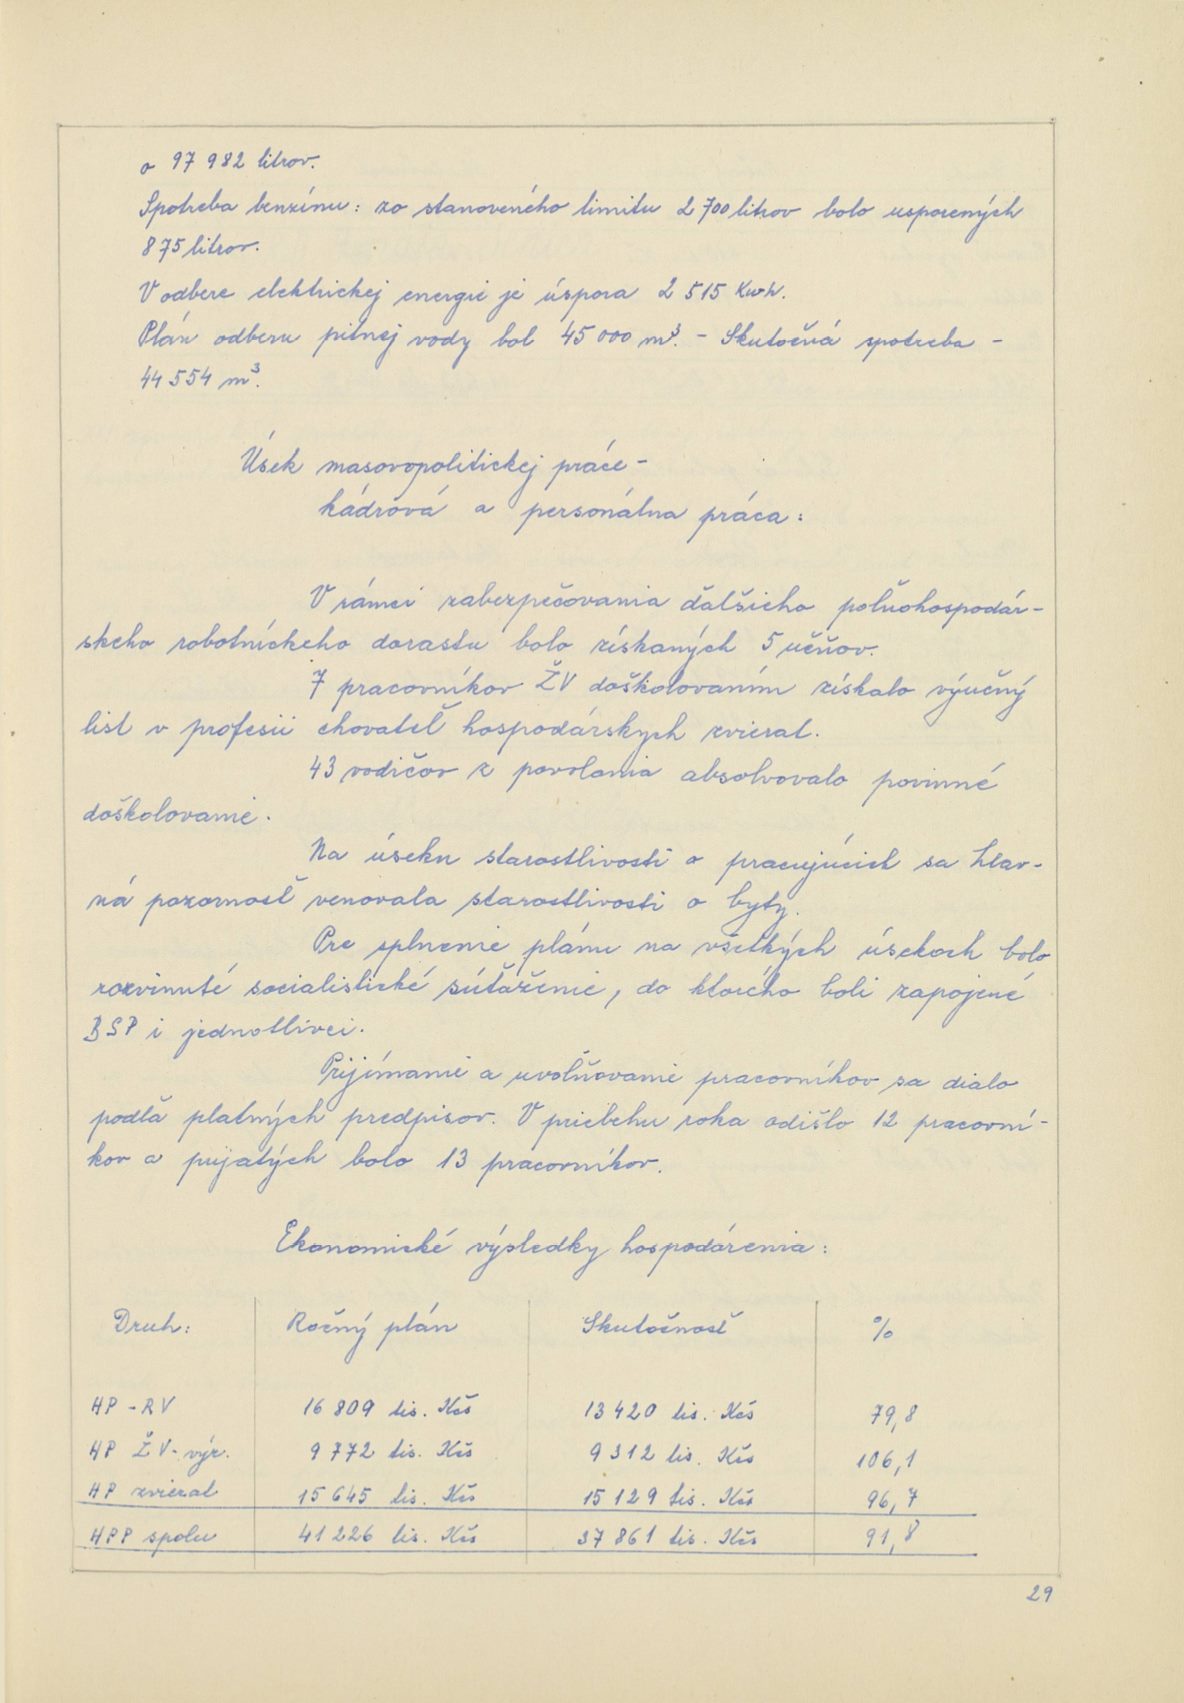 o 97 982 litrov.
Spotreba benzínu: zo stanoveného limitu 2 700 litrov bolo usporených
875 litrov.
V odbere elektrickej energie je úspora 2 515 Kwh.
Plán odberu pitnej vody bol 45 000 m³. - Skutočná spotreba -
44 554 m³.
Úsek masovopolitickej práce -
kádrová a personálna práca:
V rámci zabezpečovania ďalšieho poľnohospodár-
skeho robotníckeho dorastu bolo získaných 5 učňov.
7 pracovníkov ŽV doškolovaním získalo výučný
list v profesii chovateľ hospodárskych zvierat.
43 vodičov z povolania absolvovalo povinné
doškolovanie.
Na úseku starostlivosti o pracujúcich sa hlav-
ná pozornosť venovala starostlivosti o byty.
Pre splnenie plánu na všetkých úsekoch bolo
rozvinuté socialistické súťaženie, do ktorého boli zapojené
BSP i jednotlivci.
Prijímanie a uvoľňovanie pracovníkov sa dialo
podľa platných predpisov. V priebehu roka odišlo 12 pracovní-
kov a prijatých bolo 13 pracovníkov.
Ekonomické výsledky hospodárenia:
Druh: Ročný plán Skutočnosť %
HP - RV 16 809 tis. Kčs 13 420 tis. Kčs 79,8
HP ŽV - výr. 9 772 tis. Kčs 9 312 tis. Kčs 106,1
HP zvierat 15 645 tis. Kčs 15 129 tis. Kčs 96,7
HPP spolu 41 226 tis. Kčs 37 861 tis. Kčs 91,8
29